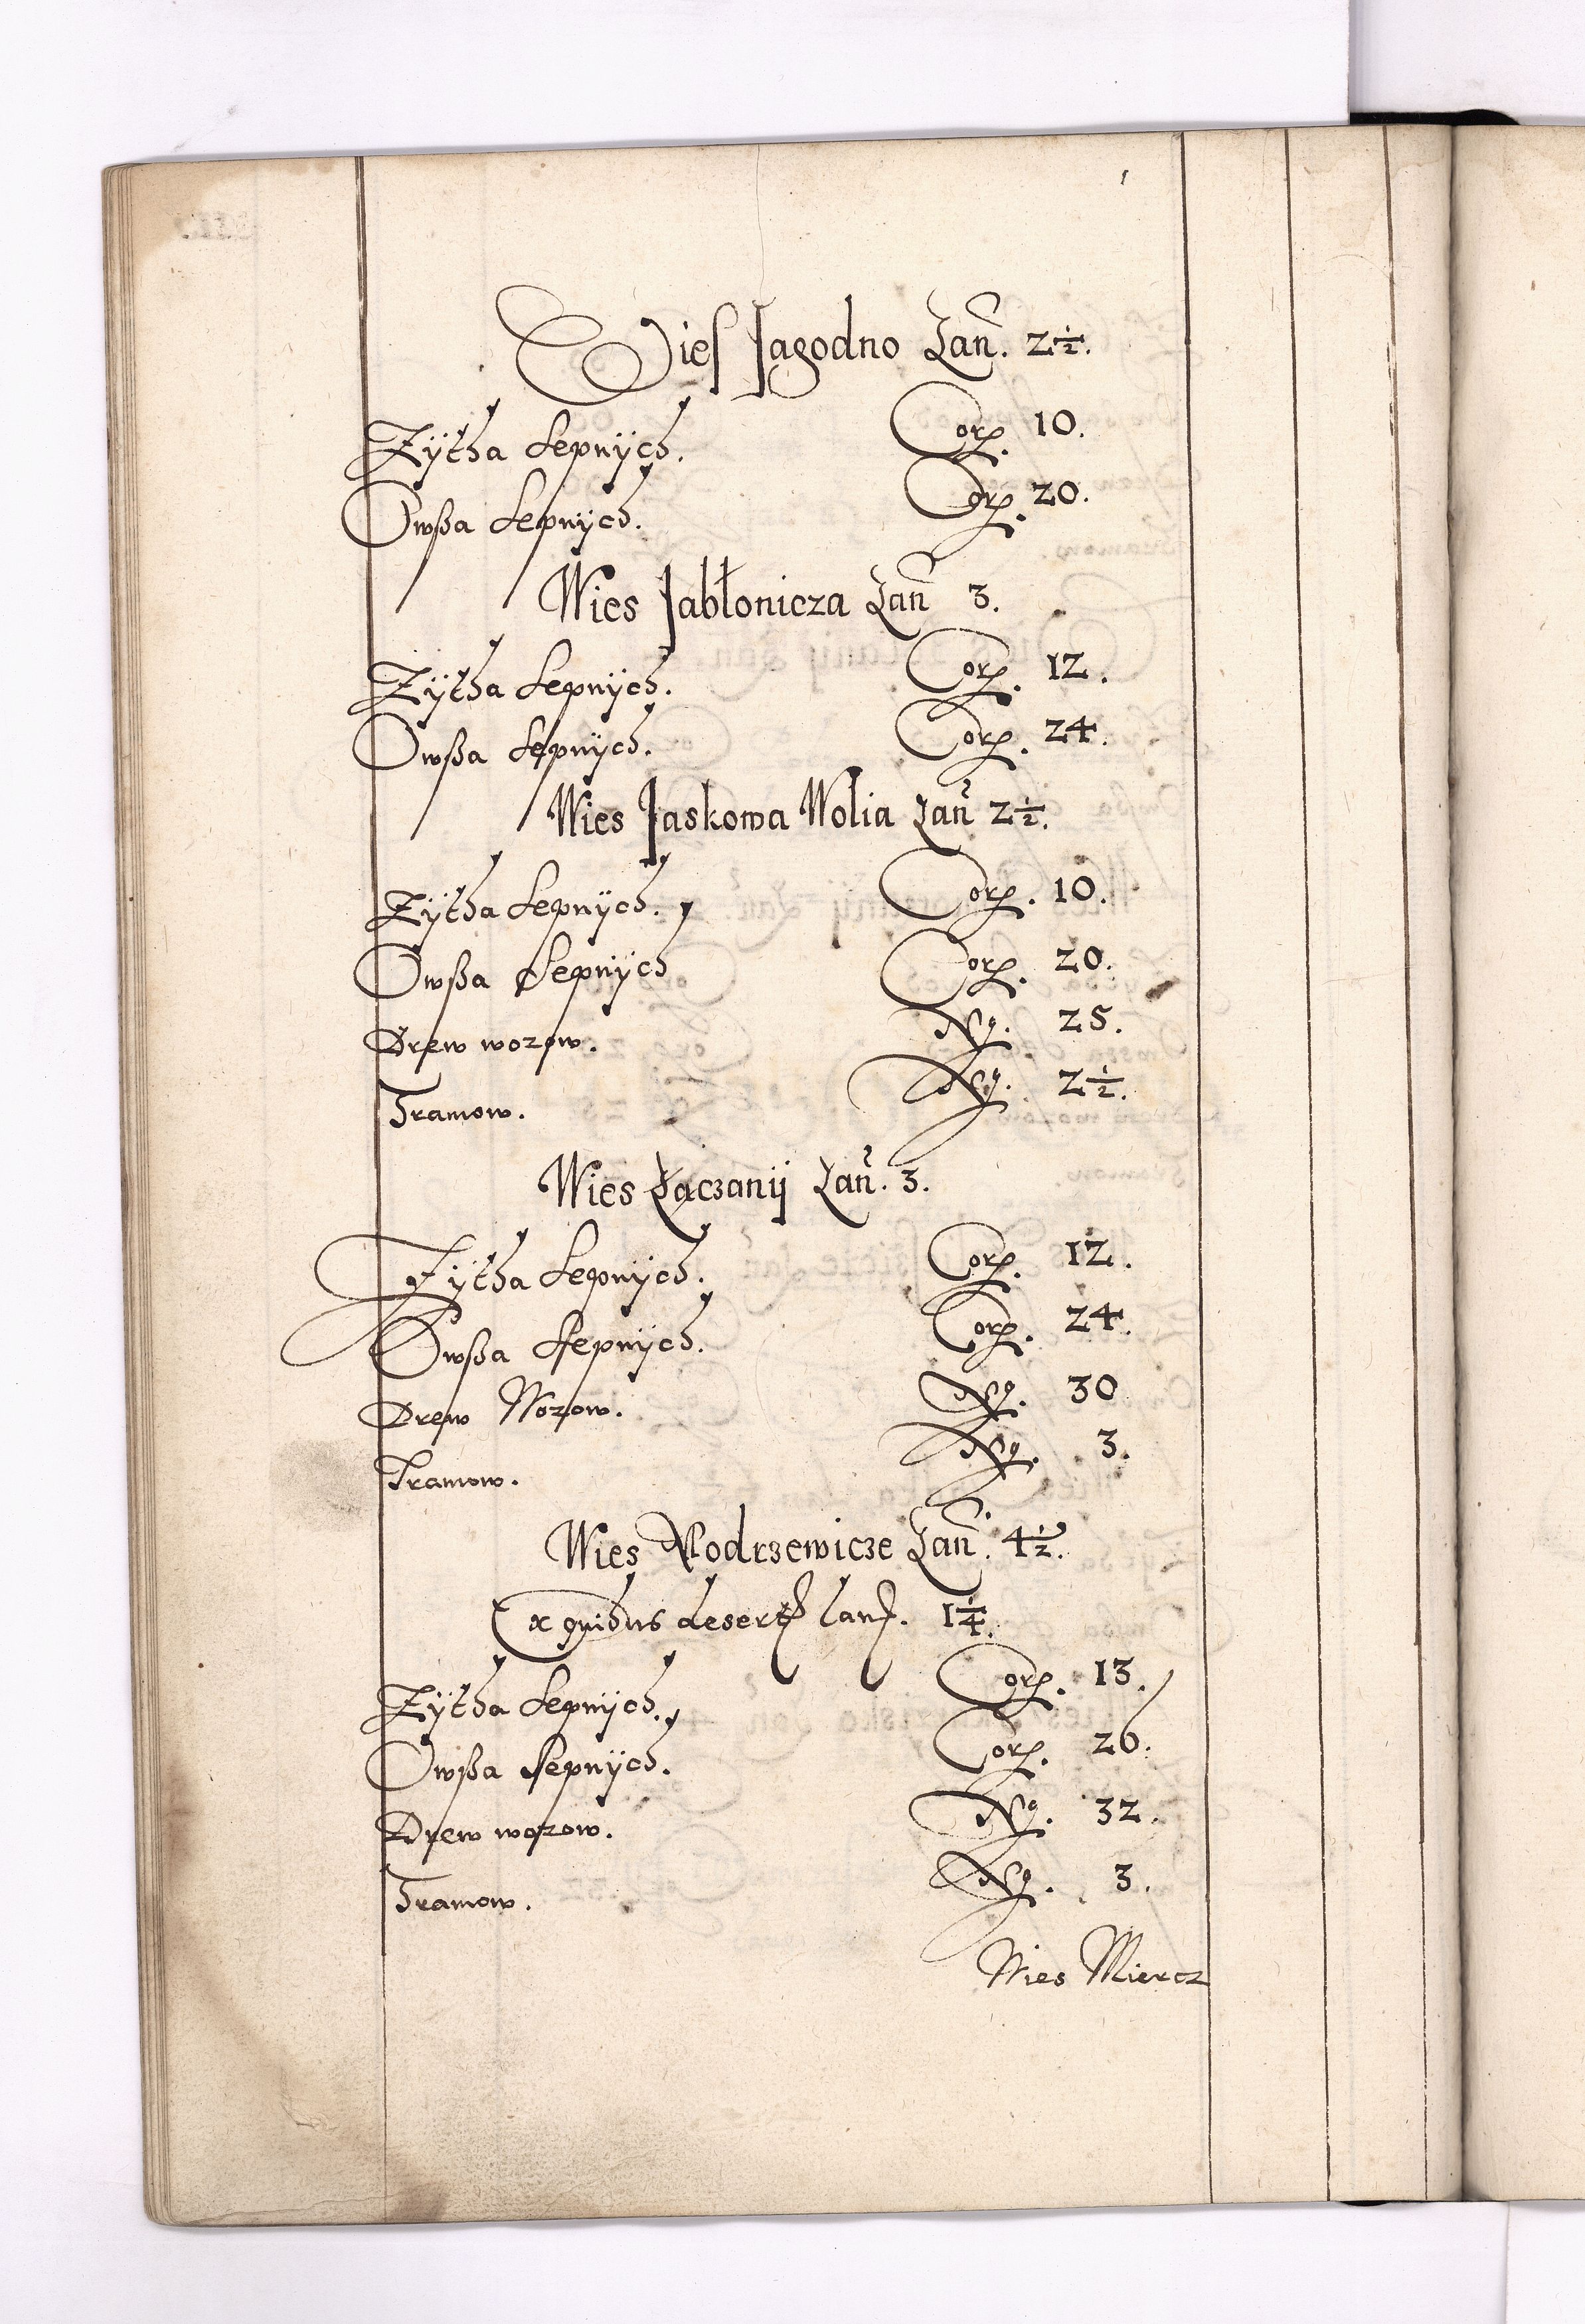 Wieſ Jagodno Łan̄. 2½.
Zÿtha Sepnÿch. Corp. 10.
Owßa Sepnÿch. Corp. 20.
Wies Jabłonicza Łan̄ 3.
Zÿtha Sepnÿch. Corp. 12.
Owßa Sepnÿch. Corp. 24.
Wies Jaskowa Wolia Łan̄ 2½.
Zÿtha Sepnÿch. Corp. 10.
Owßa Sepnÿch Corp. 20.
Drew wozow. No. 25.
Tramow. No. 2½.
Wies Łaczanÿ Łan̄. 3.
Zÿtha Sepnÿch. Corp. 12.
Owßa Sepnÿch. Corp. 24.
Drew Wozow. No. 30
Tramow. No. 3.
Wies Modrzewicze Łan̄. 4½.
Ex quibus desert. lan. 1¼.
Zÿtha Sepnÿch. Corp. 13.
Owßa Sepnÿch. Corp. 26.
Drew wozow. No. 32.
Tramow. No. 3.
Wies Miercz